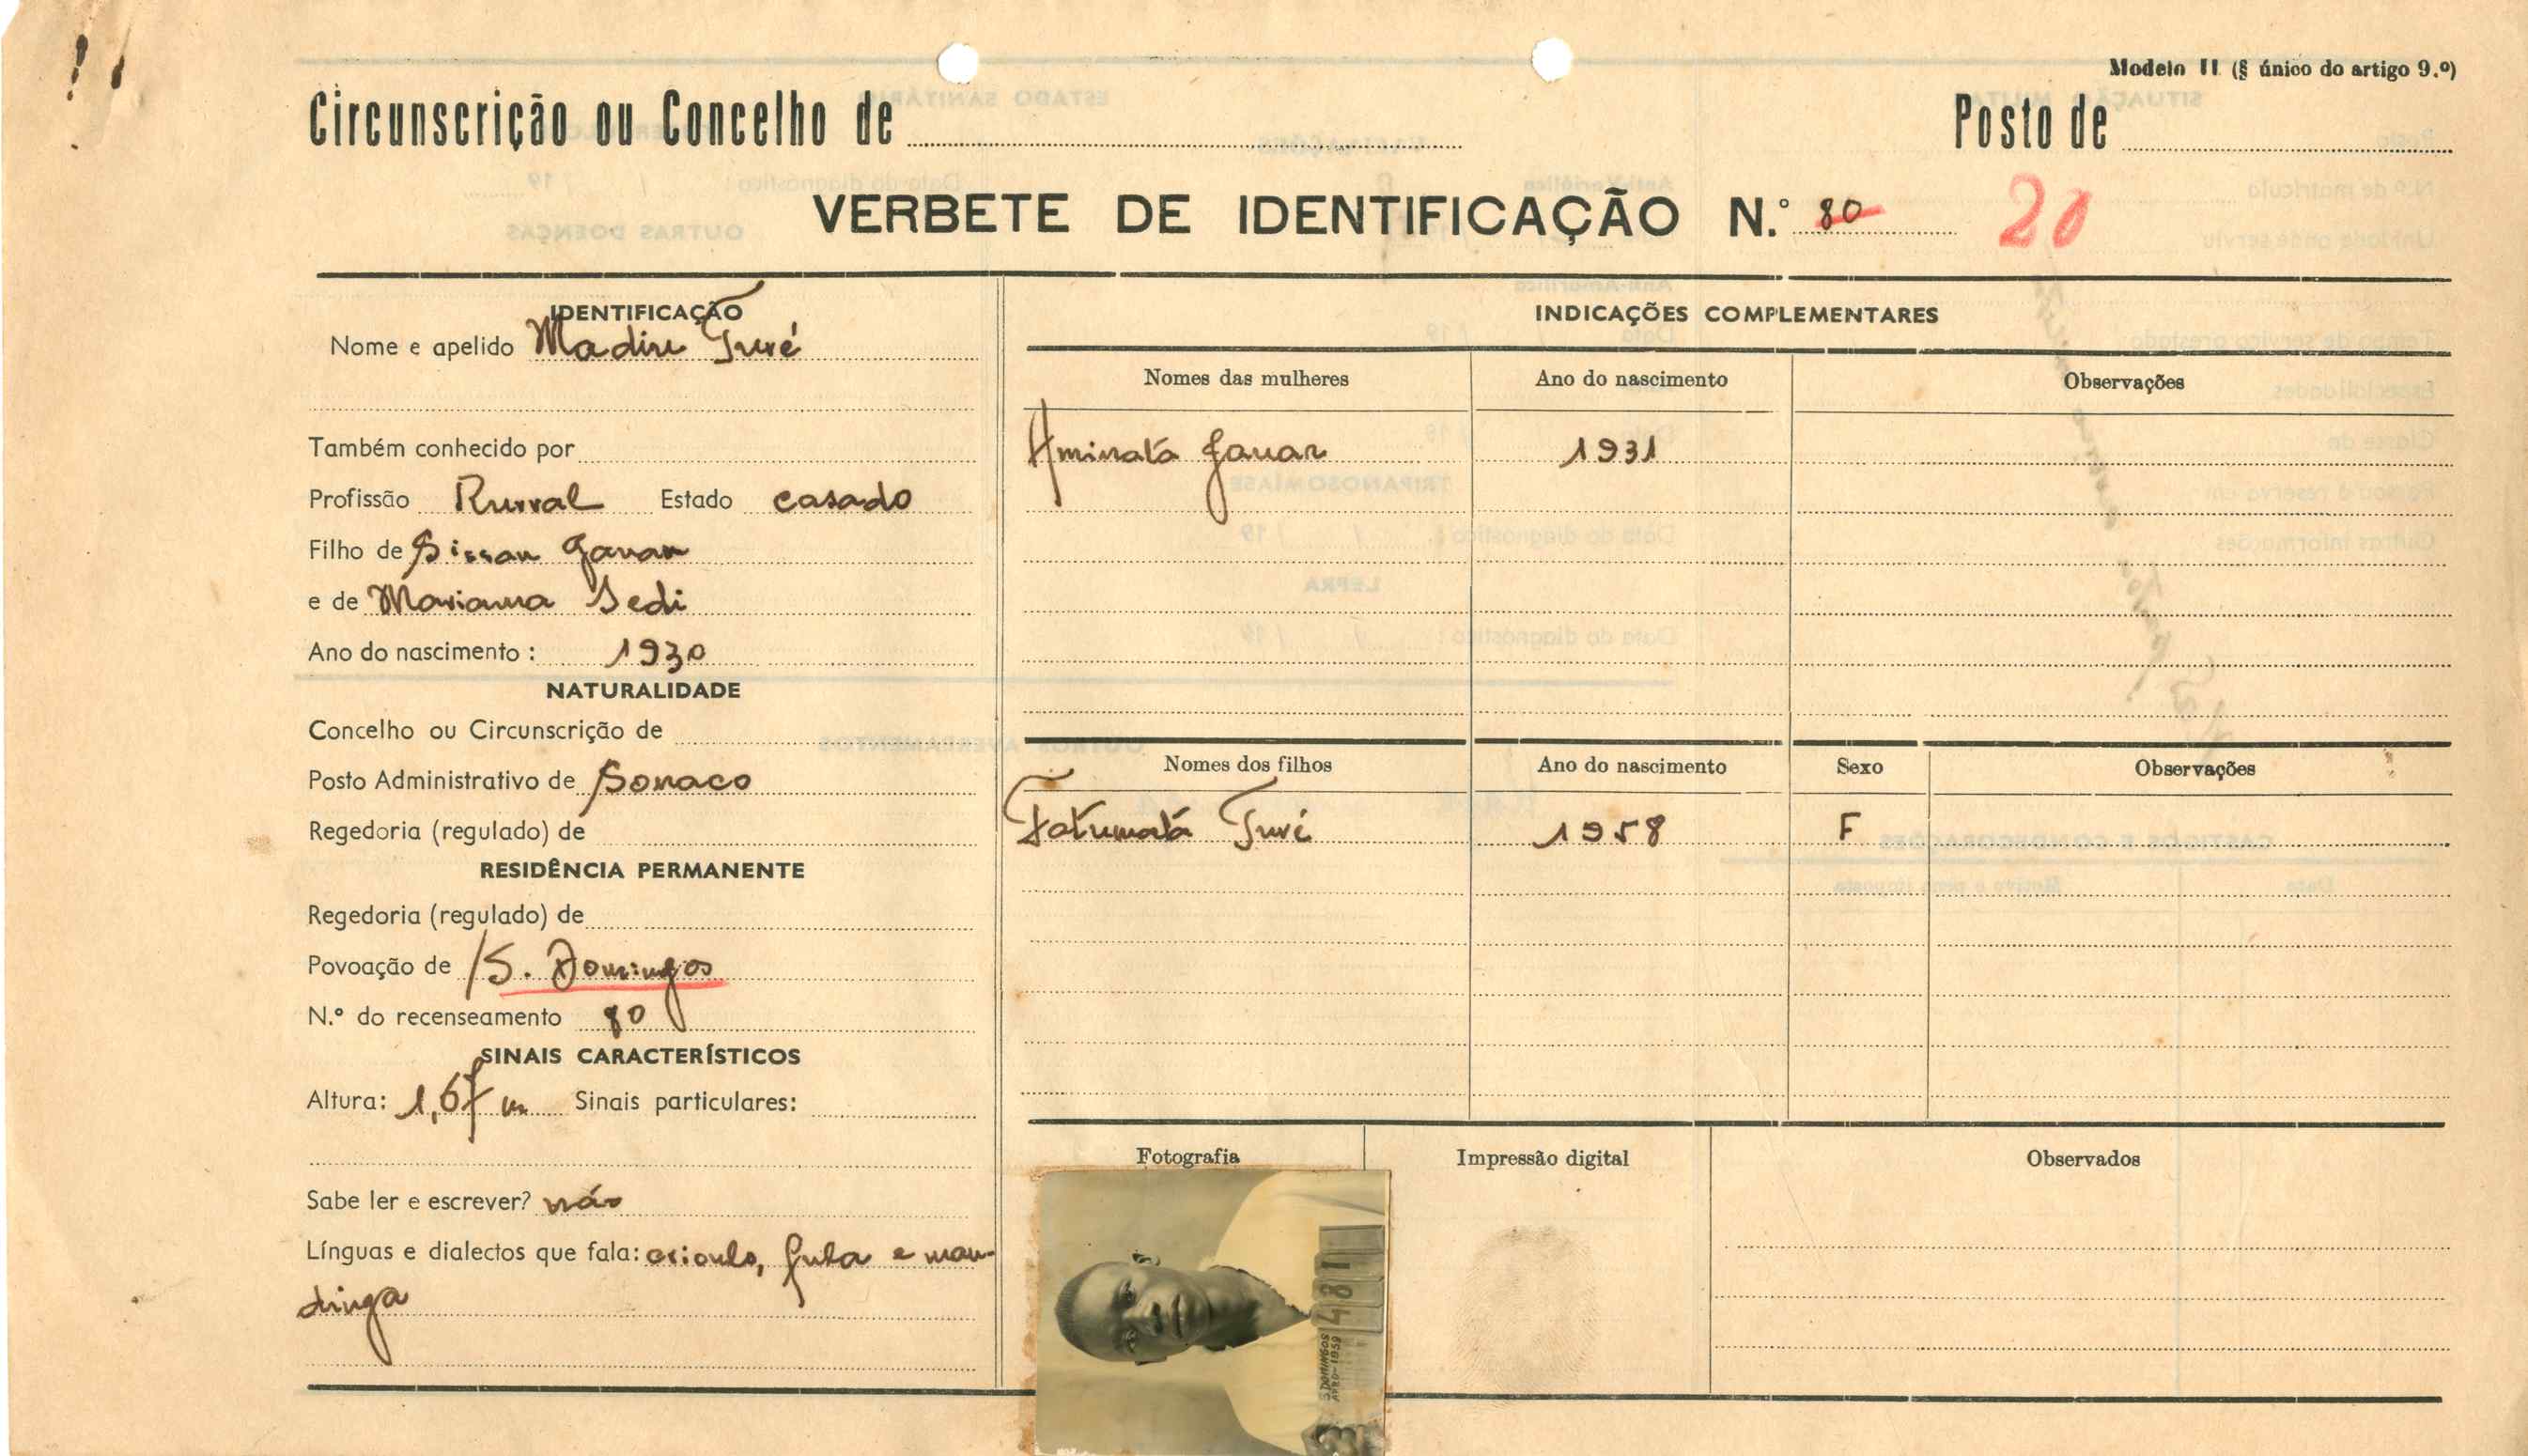 Modelo II (§ único do artigo 9.º)
Circunscrição ou Concelho de
Posto de
VERBETE DE IDENTIFICAÇÃO N.º 80 20
IDENTIFICAÇÃO
Nome e apelido Madiu Turé
Também conhecido por
Profissão Rurral Estado casado
Filho de Sissau Janan
e de Mariama Sedi
Ano do nascimento: 1930
NATURALIDADE
Concelho ou Circunscrição de
Posto Administrativo de Sonaco
Regedoria (regulado) de
RESIDÊNCIA PERMANENTE
Regedoria (regulado) de
Povoação de S. Domingos
N.º do recenseamento 80
SINAIS CARACTERÍSTICOS
Altura: 1,67 m Sinais particulares:
Sabe ler e escrever? não
Línguas e dialectos que fala: crioulo, fula e man-
dinga
INDICAÇÕES COMPLEMENTARES
Nomes das mulheres Ano do nascimento Observações
Aminatá Janar 1931
Nomes dos filhos Ano do nascimento Sexo Observações
Fatumatá Turé 1958 F
Fotografia Impressão digital Observados
481
S. DOMINGOS
1959